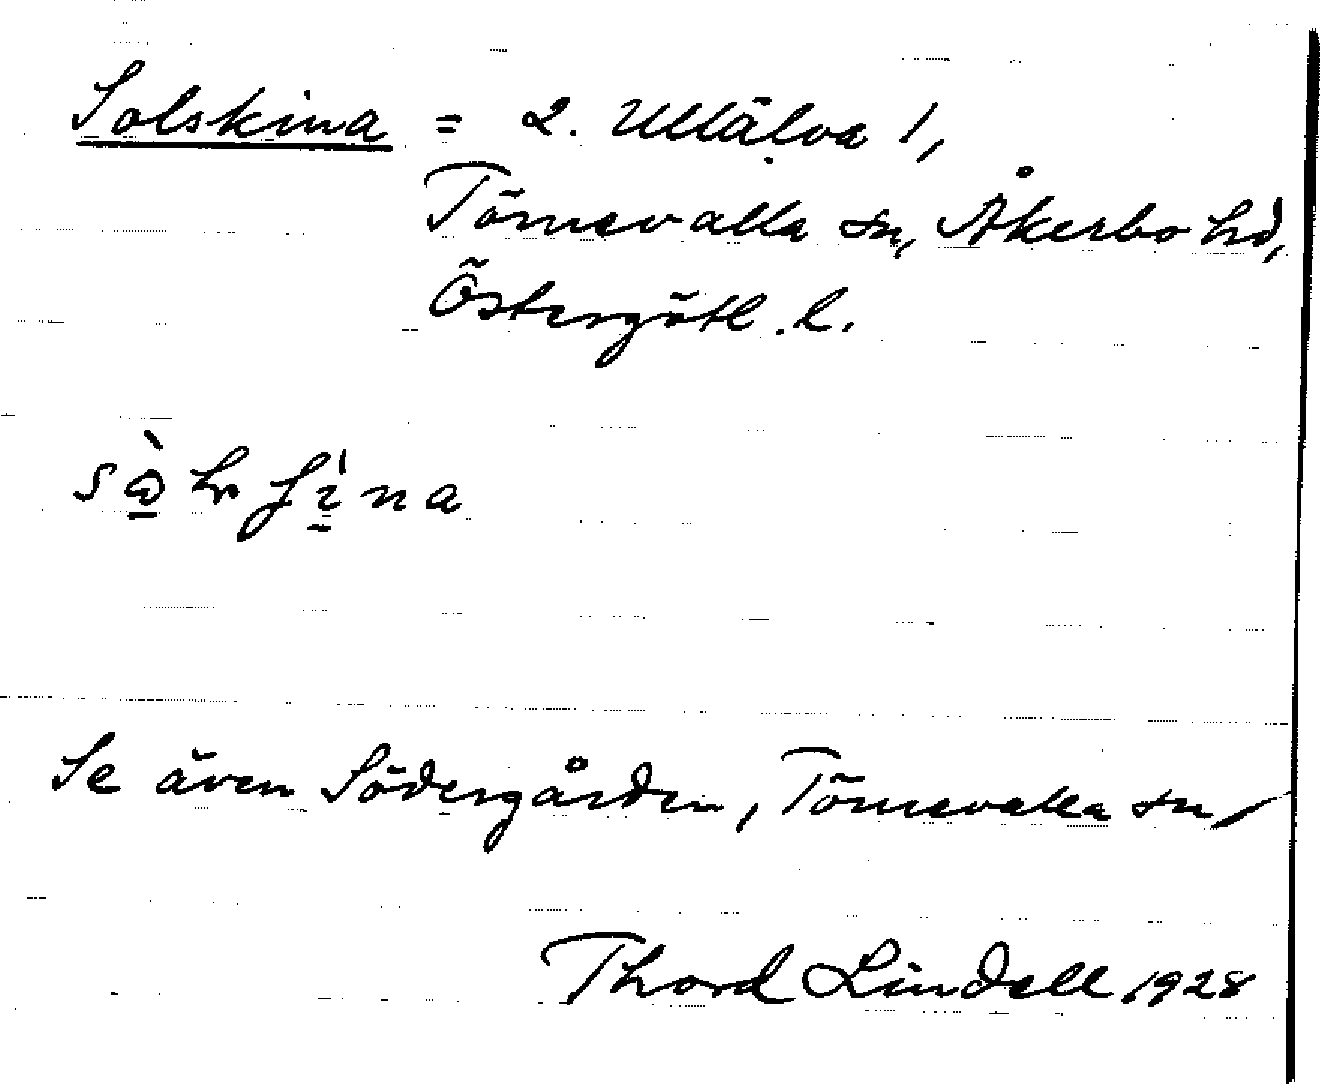 Solskina = 2. Ullälva 1,
Törnevalla sn, Åkerbo hd,
Östergötl. l.
Se även Södergården, Törnevalla sn
Thord Lindell 1928